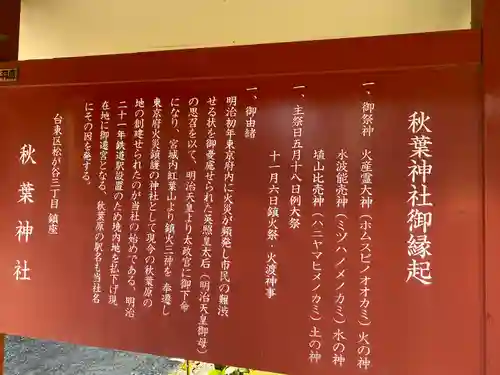 秋葉神社御縁起
一、御祭神 火産霊大神(ホムスビノオオカミ)火の神
水波能売神(ミツハノメノカミ)水の神
埴山比売神(ハニヤマヒメノカミ)土の神
一、主祭日五月十八日例大祭
十一月六日鎮火祭・火渡神事
一、御由緒
明治初年東京府内に火災が頻発し市民の難渋
せる状を御憂慮せられた英照皇太后(明治天皇御母)
の思召を以て、明治天皇より太政官に御下命
になり、宮城内紅葉山より鎮火三神を奉遷し
東京府火災鎮護の神社として現今の秋葉原の
地の創建せられたのが当社の始めである、明治
二十一年鉄道駅設置のため境内地を払下げ現
在地に御遷宮となる、秋葉原の駅名も当社名
にその因を発する。
台東区松が谷三丁目 鎮座
秋葉神社